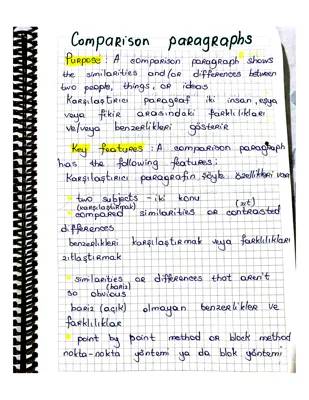 Comparison paragraphs
Purpose: A comparison paragraph shows
the similarities and/or differences between
two people, things, or ideas
Karşılaştırıcı paragraf iki insan, eşya
veya fikir arasındaki farklılıkları
ve/veya benzerlikleri gösterir
Key features: A comparison paragraph
has the following features;
Karşılaştırıcı paragrafın şöyle özellikleri var
two subjects - iki konu
(karşılaştırmak) (zıt)
compared similarities or contrasted
differences
benzerlikleri karşılaştırmak veya farklılıkları
zıtlaştırmak
similarities or differences that aren't
so obvious (bariz)
bariz (açık) olmayan benzerlikler ve
farklılıklar
point by point method or block method
nokta-nokta yöntemi ya da blok yöntemi